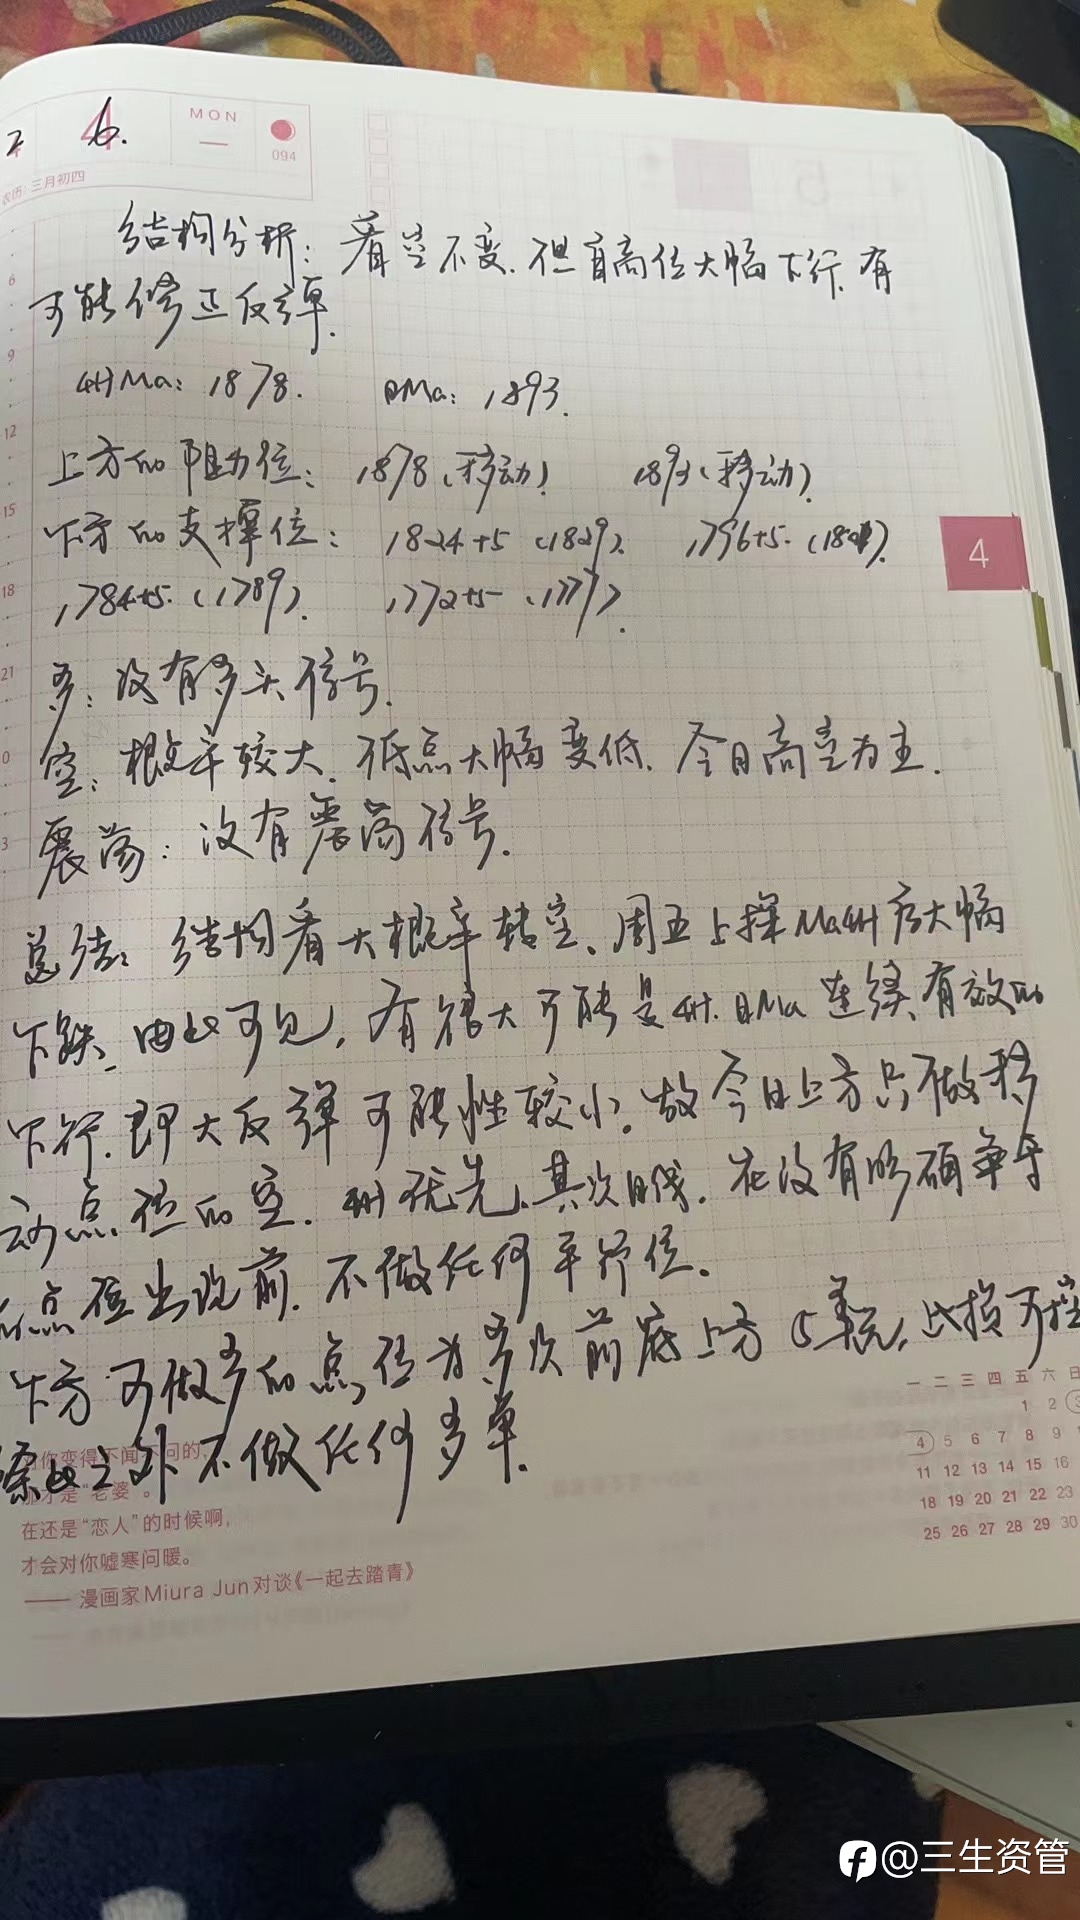 6.
MON
一
094
农历 三月初四
结构分析：看空不变.但自高位大幅下行.有
可能修正反弹.
4HMa：1878. 日Ma：1893.
上方的阻力位：1878（移动） 1893（移动）.
下方的支撑位：1824+5（1829）. 1796+5.（1801）.
1784+5.（1789） 1772+5（1777）.
多：没有多头信号.
空：概率较大.低点大幅变低.今日高空为主.
震荡：没有震荡信号.
总结：结构看大概率转空、周五上探Ma4H后大幅
下跌、由此可见，有很大可能是4H.日Ma连续、有效的
下行.即大反弹可能性较小.故今日上方只做移
动点位的空. 4H优先、其次日线.在没有明确争夺
的点位出现前.不做任何平行位.
下方可做多的点位为多次前底上方5美元，止损可控
除此之外不做任何多单.
6
9
12
15
18
21
0
3
4
一 二 三 四 五 六 日
1 2 3
4 5 6 7 8 9
11 12 13 14 15 16
18 19 20 21 22 23
25 26 27 28 29 30
你变得不闻不问的，
那才是“老婆”。
在还是“恋人”的时候啊，
才会对你嘘寒问暖。
—— 漫画家Miura Jun对谈《一起去踏青》
@三生资管